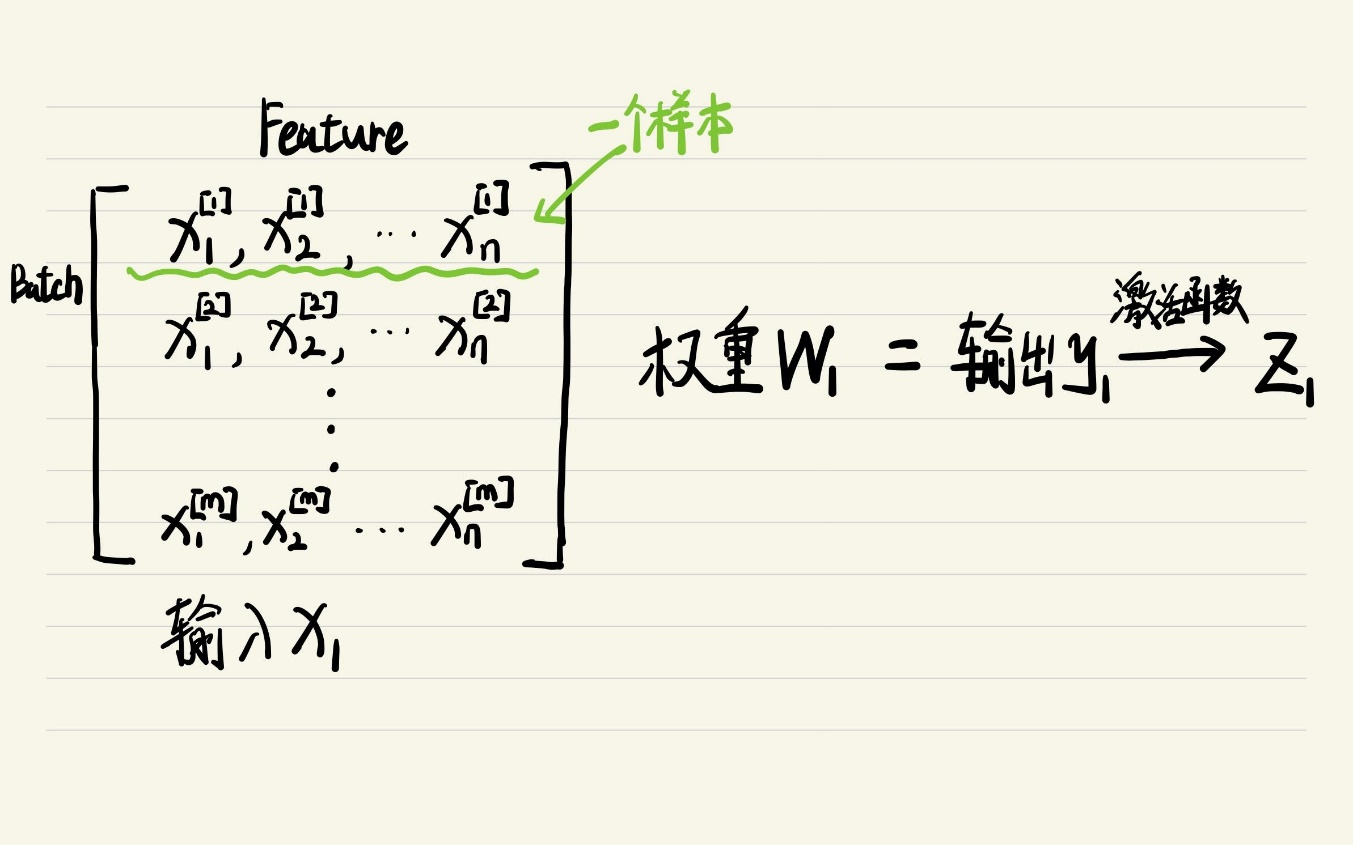 Feature
一个样本
Batch
x₁^[1], x₂^[1], ... xₙ^[1]
x₁^[2], x₂^[2], ... xₙ^[2]
⋮
x₁^[m], x₂^[m] ... xₙ^[m]
权重W₁ = 输出y₁ → Z₁
激活函数
输入X₁